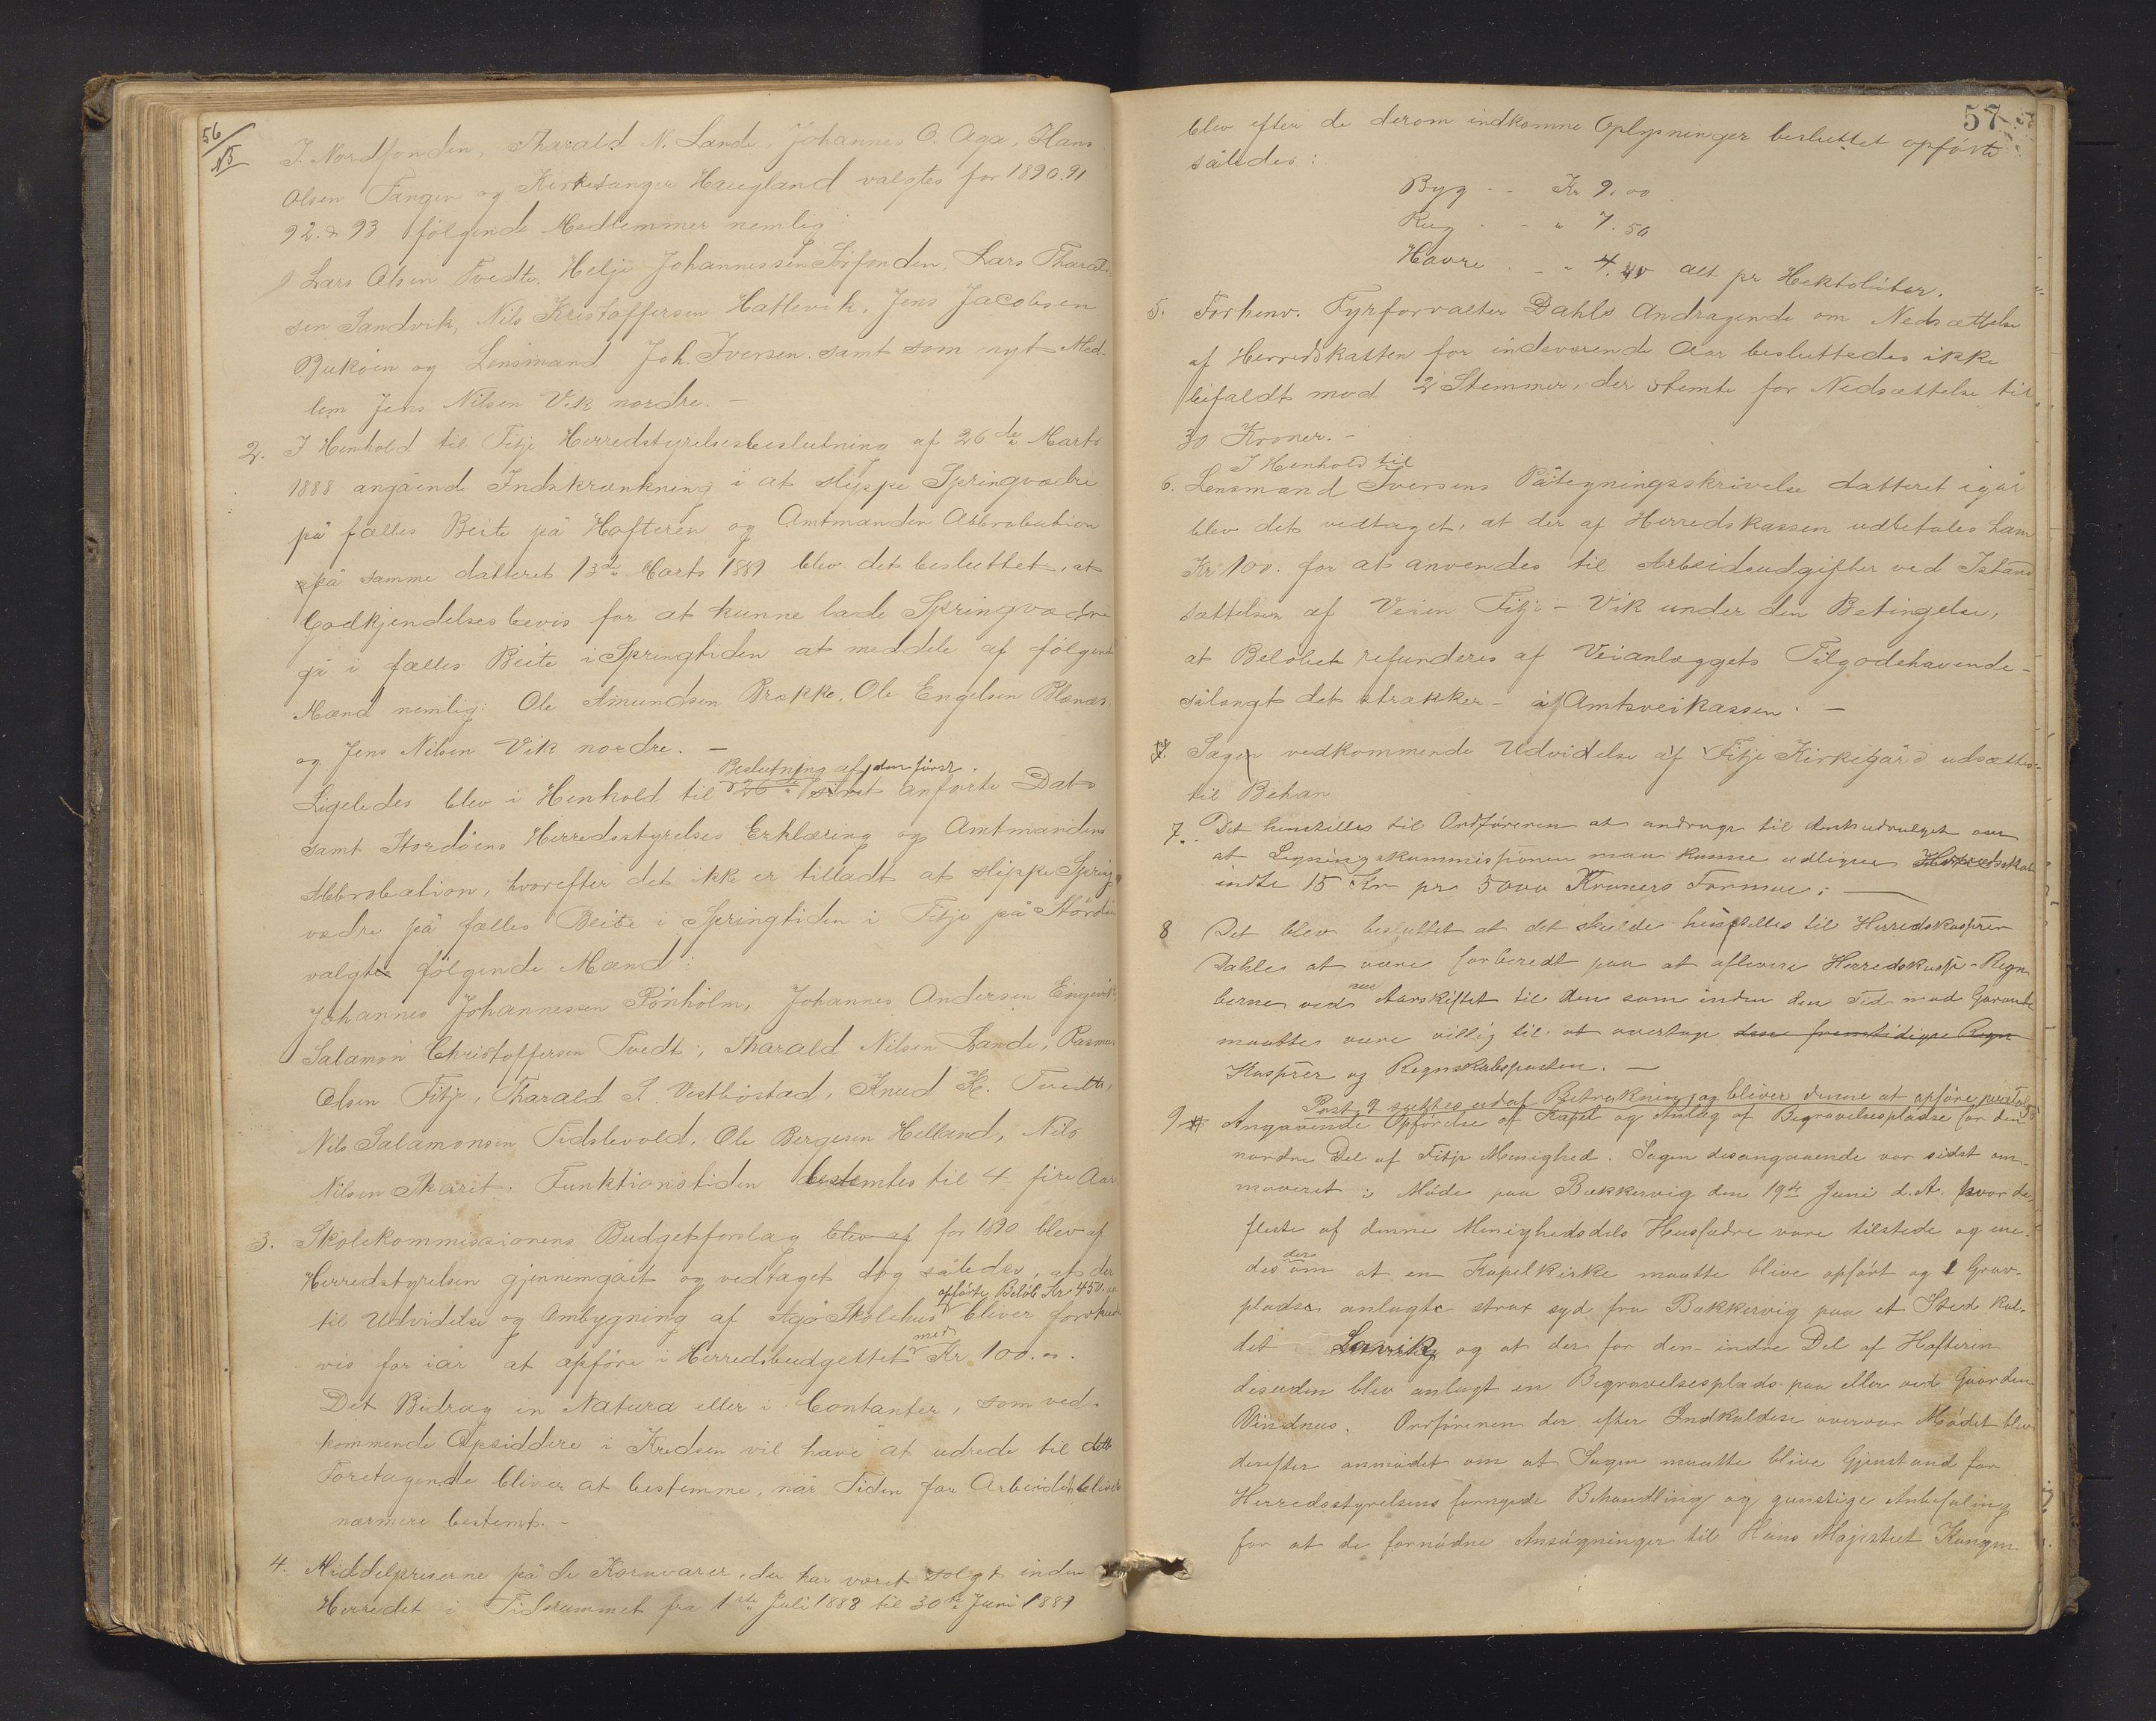 56
15
I. Nordfonden, Tharald N. Lande, Johannes O. Aga, Hans
Olsen Tangen og Kirkesanger Haugland valgtes for 1890. 91
92. & 93 følgende Medlemmer nemlig:
Lars Olsen Tvedte, Helje Johannessen Sørfonden, Lars Tharald-
sen Sandvik, Nils Kristoffersen Hatlevik, Jens Jacobsen
Bukøen og Lensmand Joh. Iversen samt som nyt Med-
lem Jens Nilsen Vik nordre. –
2. I Henhold til Fitje Herredstyrelsesbeslutning af 26de Marts
1888 angående Indskrænkning i at slippe Springvædre
på fælles Beite på Hafteren og Amtmanden Abbrobation
på samme datteret 13de Marts 1889 blev det besluttet, at
Godkjendelsesbevis for at kunne lade Springvædre
gå i fælles Beite i Springtiden at meddele af følgende
Mænd nemlig: Ole Amundsen Brække, Ole Engelsen Blænæs,
og Jens Nilsen Vik nordre. –
Beslutning af den først
Ligeledes blev i Henhold til anførte Dato
samt Stordøens Herredsstyrelses Erklæring og Amtmandens
Abbrobation, hvorefter det ikke er tilladt at slippe Spring
vædre på fælles Beite i Springtiden i Fitje på Stordøen
valgte følgende Mænd:
Johannes Johannessen Rønholm, Johannes Andersen Engevik,
Salamon Christoffersen Tvedt, Tharald Nilsen Lande, Rasmus
Olsen Fitje, Tharald S. Vestbøstad, Knud K. Tvedte,
Nils Salamonsen Tidslevold, Ole Bergesen Helland, Nils
Nilsen Skareit. Funktionstiden bestemtes til 4 fire Aar
3. Skolekommissionens Budgetforslag blev af for 1890 blev af
Herredstyrelsen gjennemgået og vedtaget dog således, at der
opførte Beløb Kr 450.00
til Udvidelse og Ombygning af Agø Skolehus bliver forskuds
med
vis for iår at opføre i Herredsbudgettet Kr. 100.00.
Det Bidrag in Natura eller i Contanter, som ved-
kommende Opsiddere i Kredsen vil have at udrede til dette
Foretagende bliver at bestemme, når Tiden for Arbeidet bliver
nærmere bestemt. –
4. Middelpriserne på de Kornvarer, der har været solgt inden
Herredet i Tidsrummet fra 1ste Juli 1888 til 30te Juni 1889
57
blev efter de derom indkomne Oplysninger besluttet opført
således:
Byg - - Kr 9.00
Rug - - " 7.50
Havre - - " 4.40 alt pr Hektoliter.
5. Forhenv. Fyrforvalter Dahls Andragende om Nedsættelse
af Herredskatten for indeværende Aar besluttedes ikke
bifaldt mod 2 Stemmer, der stemte for Nedsættelse til
30 Kroner. –
I Henhold til
6. Lensmand Iversens Påtegningsskrivelse datteret igår
blev det vedtaget, at der af Herredskassen udbetales ham
Kr 100. for at anvendes til Arbeidsudgifter ved Istand
sættelsen af Veien Fitje – Vik under den Betingelse,
at Beløbet refunderes af Veianlæggets Tilgodehavende –
sålangt det strækker – af Amtsveikassen. –
7. Sagen vedkommende Udvidelse af Fitje Kirkegård udsættes
til Behan
7. Det henstilles til Ordføreren at andrage til Amtsudvalget om
at Ligningskommissionen maa kunne udligne Herredsskat
indtil 15 Kr pr 5000 Kroners Formue. –
8 Det blev besluttet at det skulde henstilles til Herredskasserer
Dahle at være forberedt paa at aflevere Herredskasse-Regn
berne ved Aarskiftet til den som inden den Tid mod Garanti
maatte være villig til at overtage den fremtidige Regn
Kasserer og Regnskabsposten. –
Post 9 sættes ud af Betrakning og bliver denne at opføre
9 Angaaende Opførelse af Kapel og Anlæg af Begravelsesplads for den
nordre Del af Fitje Menighed. Sagen desangaaende var sidst om-
maneret i Møde paa Bækkervig den 19de Juni d. A. hvor de
fleste af denne Menighedsdels Husfædre vare tilstede og ene-
der
des om at en Kapelkirke maatte blive opført og 1 Grav-
plads anlagt strax syd fra Bækkervig paa et Sted kal-
det Larvik og at der for den indre Del af Hafteren
desuden blev anlagt en Begravelsesplads paa eller ved Gaarden
Vindnes. Ordføreren der efter Indkaldelse overvar Mødet blev
derefter anmodet om at Sagen maatte blive Gjenstand for
Herredsstyrelsens fornyede Behandling og gunstige Anbefaling
for at de fornødne Ansøgninger til Hans Majestæt Kongen